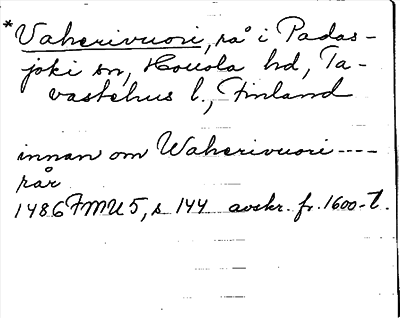 *Vaherivuori, rå i Padas-
joki sn, Hollola hd, Ta-
vastehus l., Finland
innan om Waherivuori ----
rår
1486 FMU 5, s 144 avskr. fr. 1600-t.